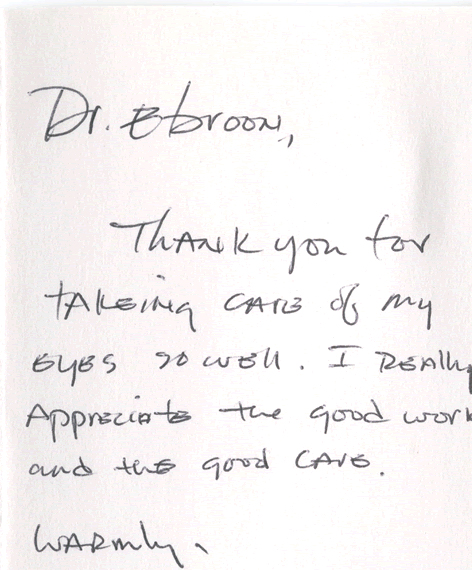 Dr. Ebroon,
Thank you for
takeing care of my
eyes so well. I Really
Appreciate the good work
and the good care.
Warmly,